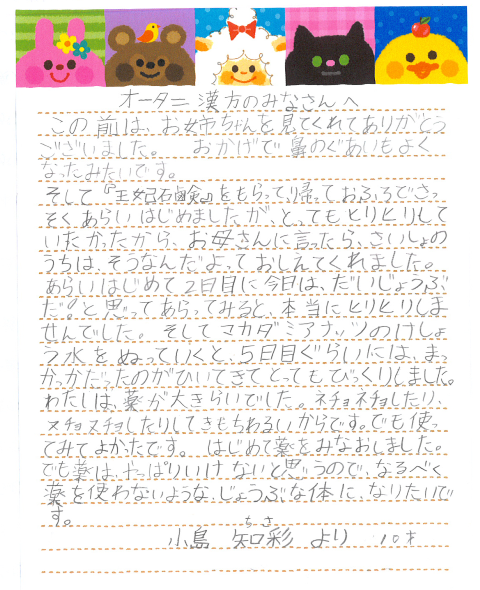 オータニ漢方のみなさんへ
この前は、お姉ちゃんを見てくれてありがとう
ございました。 おかげで鼻のぐあいもよく
なったみたいです。
そして『王妃石鹸』をもらって、帰っておふろでさっ
そくあらいはじめましたが、とってもヒリヒリして
いたかったから、お母さんに言ったら、さいしょの
うちは、そうなんだよっておしえてくれました。
あらいはじめて2日目に今日は、だいじょうぶ
だ!と思ってあらってみると、本当にヒリヒリしま
せんでした。そしてマカダミアナッツのけしょ
う水をぬっていくと、5日目ぐらいには、まっ
かっかだったのがひいてきてとってもびっくりしました。
わたしは、薬が大きらいでした。ネチョネチョしたり、
ヌチョヌチョしたりしてきもちわるいからです。でも使っ
てみてよかったです。 はじめて薬をみなおしました。
でも薬は、やっぱりいけないと思うので、なるべく
薬を使わないような、じょうぶな体に、なりたいで
す。
ちさ
小島 知彩 より 10才